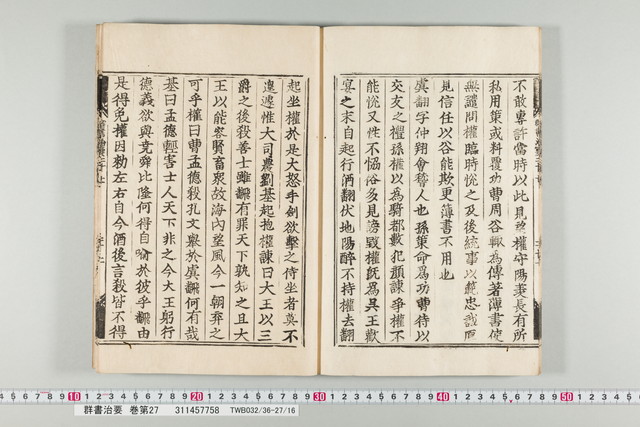 不敢專許當時以此見望權守陽羨長有所
私用策或料覆功曹周谷輙為傳著簿書使
無譴問權臨時悅之及後統事以範忠誠厚
見信任以谷能欺更簿書不用也
虞翻字仲翔會稽人也孫策命為功曹待以
交友之禮孫權以為騎都尉數犯顏諫爭權不
能悅又性不協俗多見謗毀權既為吳王歡
宴之末自起行酒翻伏地陽醉不持權去翻
起坐權於是大怒手劍欲擊之侍坐者莫不
遑遽惟大司農劉基起抱權諫曰大王以三
爵之後殺善士雖翻有罪天下孰知之且大
王以能容賢畜衆故海內望風今一朝弃之
可乎權曰曹孟德殺孔文舉於虞翻何有哉
基曰孟德輕害士人天下非之今大王躬行
德義欲與堯舜比隆何得自喻於彼乎翻由
是得免權因勑左右自今酒後言殺皆不得
10 20 30 40 50
群書治要 巻第27 311457758 TWB032/36-27/16